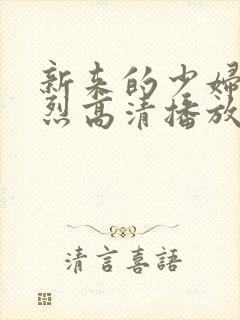 新来的少婦
烈高清播放
清言喜語